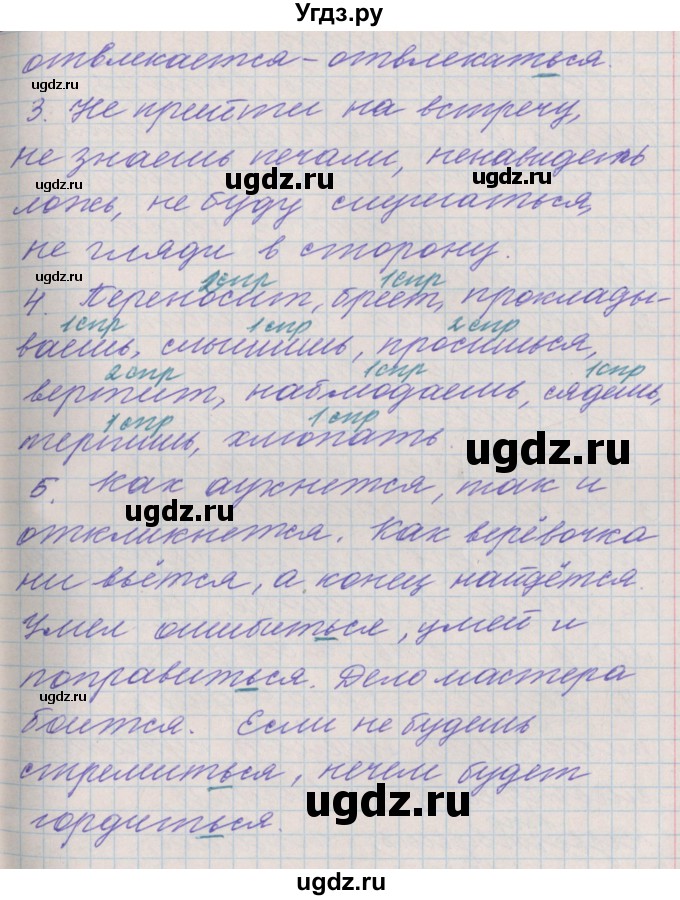 Угдз.ру
отвлекается - отвлекаться.
ugdz.ru
3. Не прийти на встречу,
не знаешь печали, ненавидеть
ugdz.ru ugdz.ru ugdz.ru
ложь, не буду слушаться,
не гляди в сторону.
ugdz.ru 2спр 1спр
4. Переносит, бреет, проклады-
1спр 1спр 2спр
ваешь, слышишь, просишься,
2спр 1спр 1спр
вертит, наблюдаешь, сядешь,
1спр 1спр
терпишь, хлопать.
ugdz.ru
5. Как аукнется, так и
ugdz.ru
откликнется. Как верёвочка
ни вьётся, а конец найдётся.
Умел ошибиться, умей и
поправиться. Дело мастера
ugdz.ru
боится. Если не будешь
стремиться, нечем будет
ugdz.ru
гордиться.
ugdz.ru